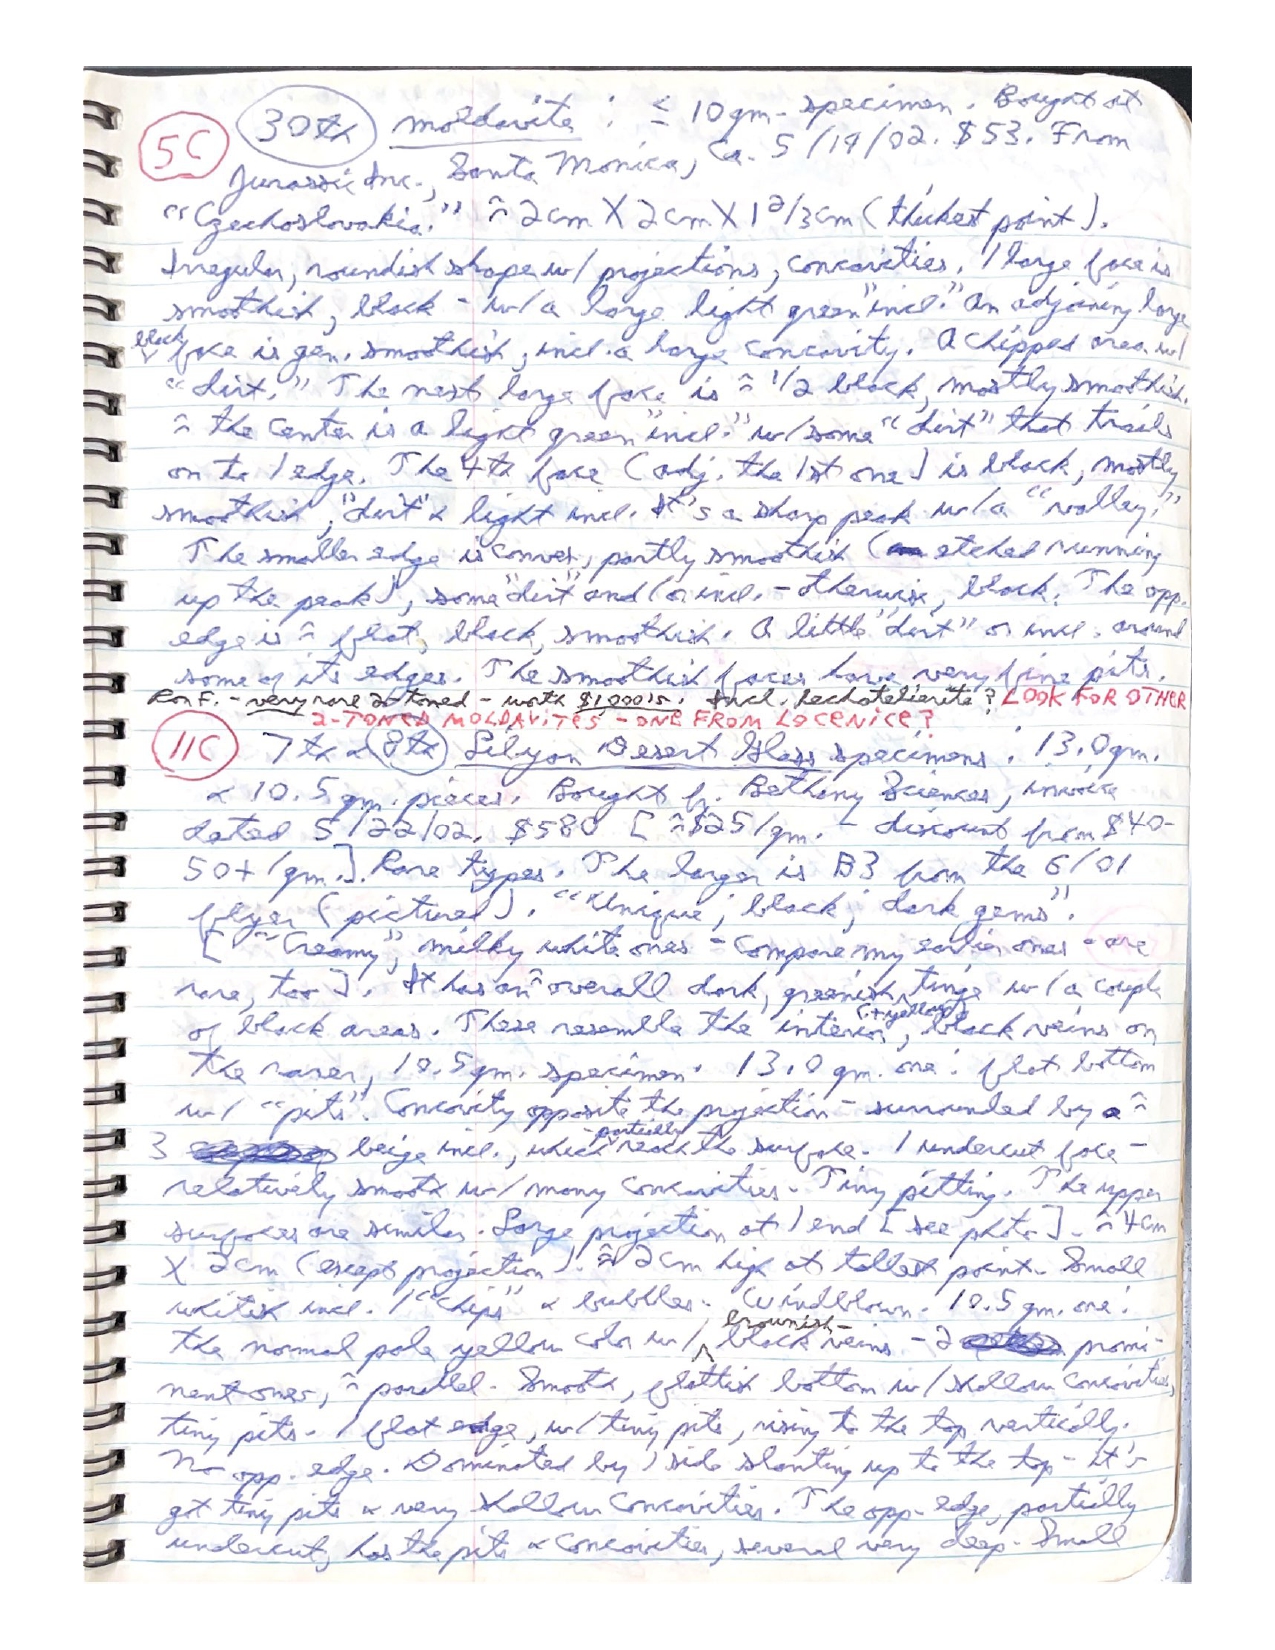 5C 30th moldavite : ≤ 10 gm. specimen. Bought at
Jurassic Inc., Santa Monica, Ca. 5/19/02. $53. From
"Czechoslovakia." ≈ 2cm X 2cm X 1 2/3cm (thickest point).
Irregular, roundish shape w/ projections, concavities. 1 large face is
smoothish, black - w/ a large light green "incl." An adjoining large
black face is gen. smoothish, incl. a large concavity. A chipped area w/
"dirt." The next large face is ≈ 1/2 black, mostly smoothish.
≈ the center is a light green "incl." w/ some "dirt" that trails
on to 1 edge. The 4th face (adj. the 1st one) is black, mostly
smoothish, "dirt" & light incl. It's a sharp peak w/ a "valley."
The smaller edge is convex, partly smoothish (etched running
up the peak), some "dirt" and/or incl. - otherwise, black. The opp.
edge is ≈ flat, black, smoothish. A little "dirt" or incl. around
some of its edges. The smoothish faces have very fine pits.
Ron F. - very rare 2-toned - worth $1,000's. Incl. lechatelierite? LOOK FOR OTHER
2-TONED MOLDAVITES - ONE FROM LOCENICE?
11C 7th & 8th Libyan Desert Glass specimens : 13.0 gm.
& 10.5 gm. pieces. Bought f. Bethany Sciences, invoice
dated 5/22/02. $580 [≈ $25/gm. - discount from $40-
50+/gm.]. Rare types. The larger is B3 from the 6/01
flyer (pictured). "Unique; black; dark gems".
["Creamy", milky white ones - compare my earlier ones - are
rare, too]. It has an ≈ overall dark, greenish (+ yellow) tinge w/ a couple
of black areas. These resemble the interior, black veins on
the rarer, 10.5 gm. specimen. 13.0 gm. one: flat bottom
w/ "pits". Concavity opposite the projection - surrounded by ≈
3 beige incl., which - partially reach the surface. 1 undercut face -
relatively smooth w/ many concavities. Tiny pitting. The upper
surfaces are similar. Large projection at 1 end [see photo]. ≈ 4cm
X 2cm (except projection). ≈ 2cm high at tallest point. Small
whitish incl. 1 "chips" & bubbles. Windblown. 10.5 gm. one:
the normal pale yellow color w/ brownish- black veins - 2 promi-
nent ones, ≈ parallel. Smooth, flattish bottom w/ shallow concavities,
tiny pits. 1 flat edge, w/ tiny pits, rising to the top vertically.
No opp. edge. Dominated by 1 side slanting up to the top - it's
got tiny pits & very shallow concavities. The opp. edge, partially
undercut, has the pits & concavities, several very deep. Small